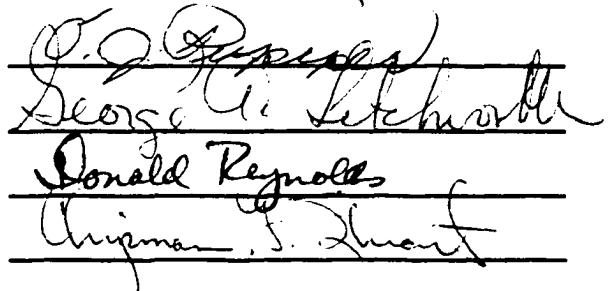 George A. Letchworth
Donald Reynolds
Chipman G. Stuart